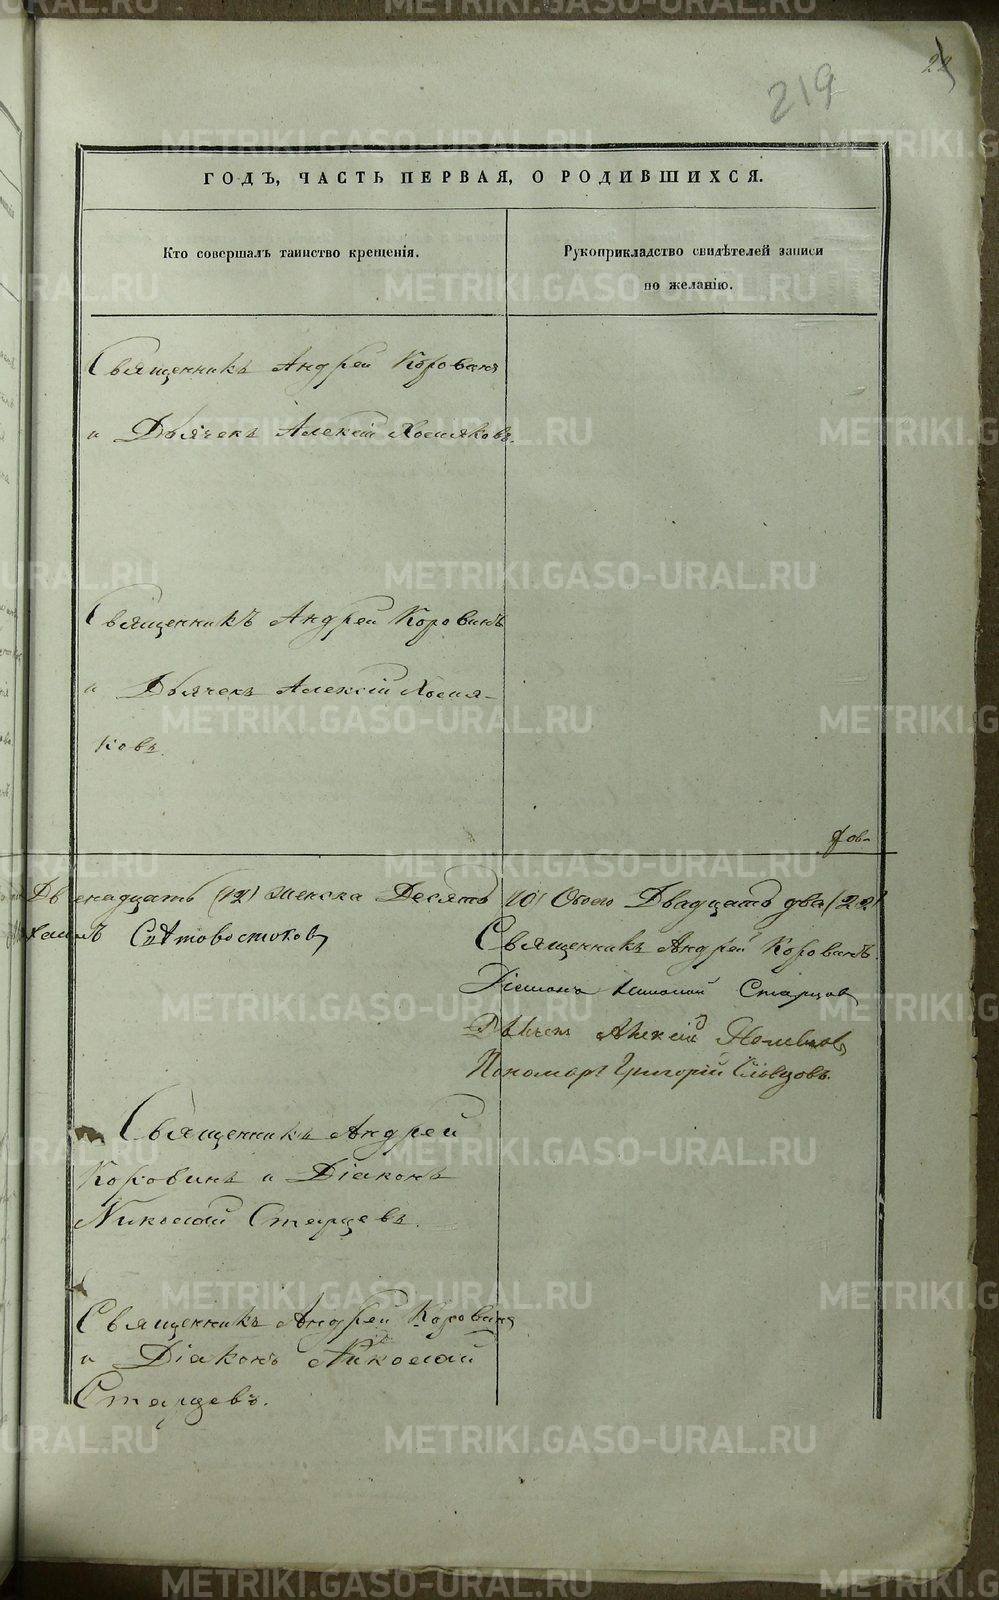 22
219
ГОДЪ, ЧАСТЬ ПЕРВАЯ, О РОДИВШИХСЯ.
Кто совершалъ таинство крещенія.
Рукоприкладство свидѣтелей записи
по желанію.
Священникъ Андрей Коровинъ
и Дьячекъ Алексій Хомяковъ.
Священникъ Андрей Коровинъ
и Дьячекъ Алексій Хомя-
ковъ.
Двенадцать (12) женска Десять (10) Обоего Двадцать два (22)
Священникъ Андрей Коровинъ.
Діаконъ Николай Старцовъ
Дьячекъ Алексій
Пономарь Григорій Слѣпцовъ.
Священникъ Андрей
Коровинъ и Діаконъ
Николай Старцевъ.
Священникъ Андрей Коровинъ
и Діаконъ Николай
Старцевъ.
METRIKI.GASO-URAL.RU